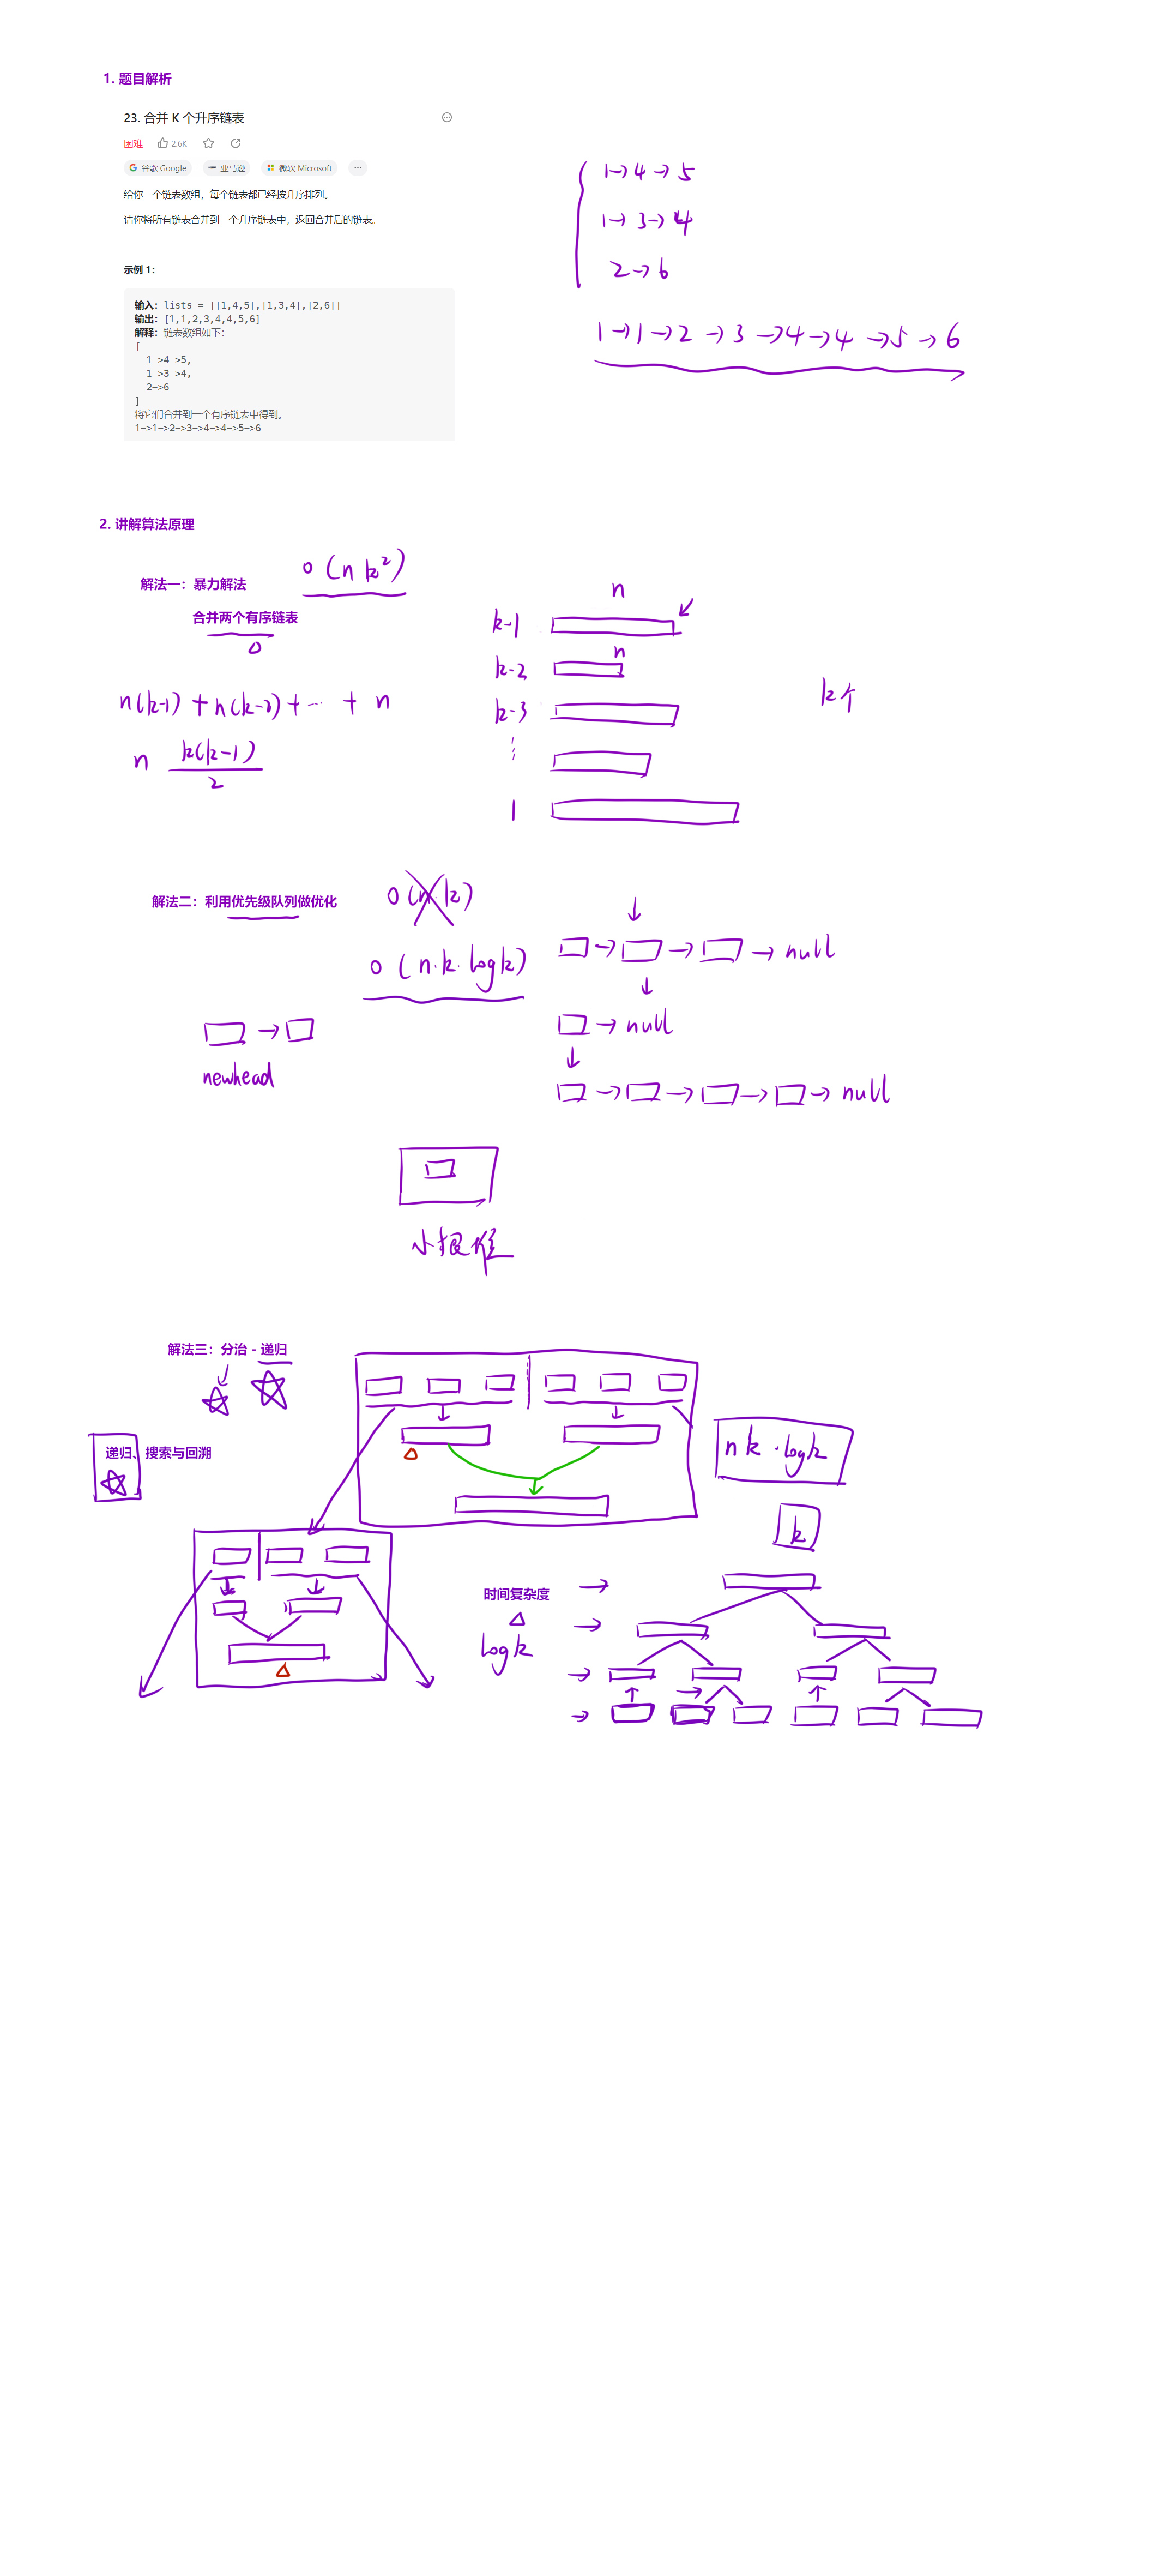 1. 题目解析
23. 合并 K 个升序链表
困难 2.6K
谷歌 Google 亚马逊 微软 Microsoft ...
给你一个链表数组，每个链表都已经按升序排列。
请你将所有链表合并到一个升序链表中，返回合并后的链表。
示例 1：
输入：lists = [[1,4,5],[1,3,4],[2,6]]
输出：[1,1,2,3,4,4,5,6]
解释：链表数组如下：
[
1->4->5,
1->3->4,
2->6
]
将它们合并到一个有序链表中得到。
1->1->2->3->4->4->5->6
1→4→5
1→3→4
2→6
1→1→2→3→4→4→5→6
2. 讲解算法原理
解法一：暴力解法
O(nk²)
合并两个有序链表
n(k-1)+n(k-2)+…+n
n k(k-1)/2
n
k-1
n
k-2
k-3
⋮
1
k个
解法二：利用优先级队列做优化
O(n·k)
O(n·k·logk)
→null
→null
→null
newhead
小根堆
解法三：分治 - 递归
递归、搜索与回溯
nk·logk
k
时间复杂度
logk